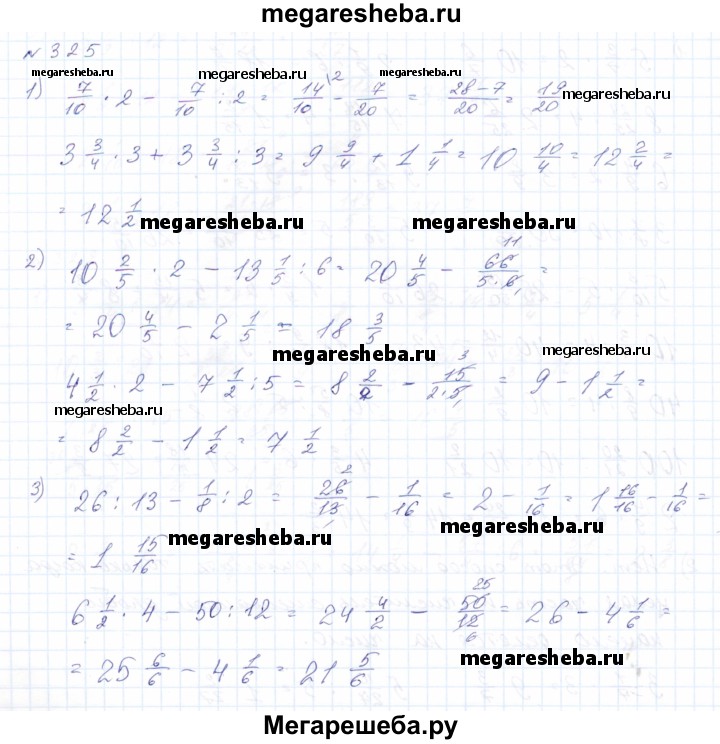 megaresheba.ru
№ 325
megaresheba.ru megaresheba.ru megaresheba.ru
1) 7/10 · 2 − 7/10 : 2 = 14/10 \2 − 7/20 = 28−7/20 = 19/20 megaresheba.ru
3 3/4 · 3 + 3 3/4 : 3 = 9 9/4 + 1 1/4 = 10 10/4 = 12 2/4 =
= 12 1/2
megaresheba.ru megaresheba.ru
2) 10 2/5 · 2 − 13 1/5 : 6 = 20 4/5 − 66 11/5·6 1 =
= 20 4/5 − 2 1/5 = 18 3/5
megaresheba.ru megaresheba.ru
4 1/2 · 2 − 7 1/2 : 5 = 8 2/2 − 15 3/2·5 1 = 9 − 1 1/2 =
megaresheba.ru
= 8 2/2 − 1 1/2 = 7 1/2
3) 26 : 13 − 1/8 : 2 = 26 2/13 1 − 1/16 = 2 − 1/16 = 1 16/16 − 1/16 =
megaresheba.ru megaresheba.ru
= 1 15/16
6 1/2 · 4 − 50 : 12 = 24 4/2 − 50 25/12 6 = 26 − 4 1/6 =
= 25 6/6 − 4 1/6 = 21 5/6
megaresheba.ru
Мегарешеба.ру